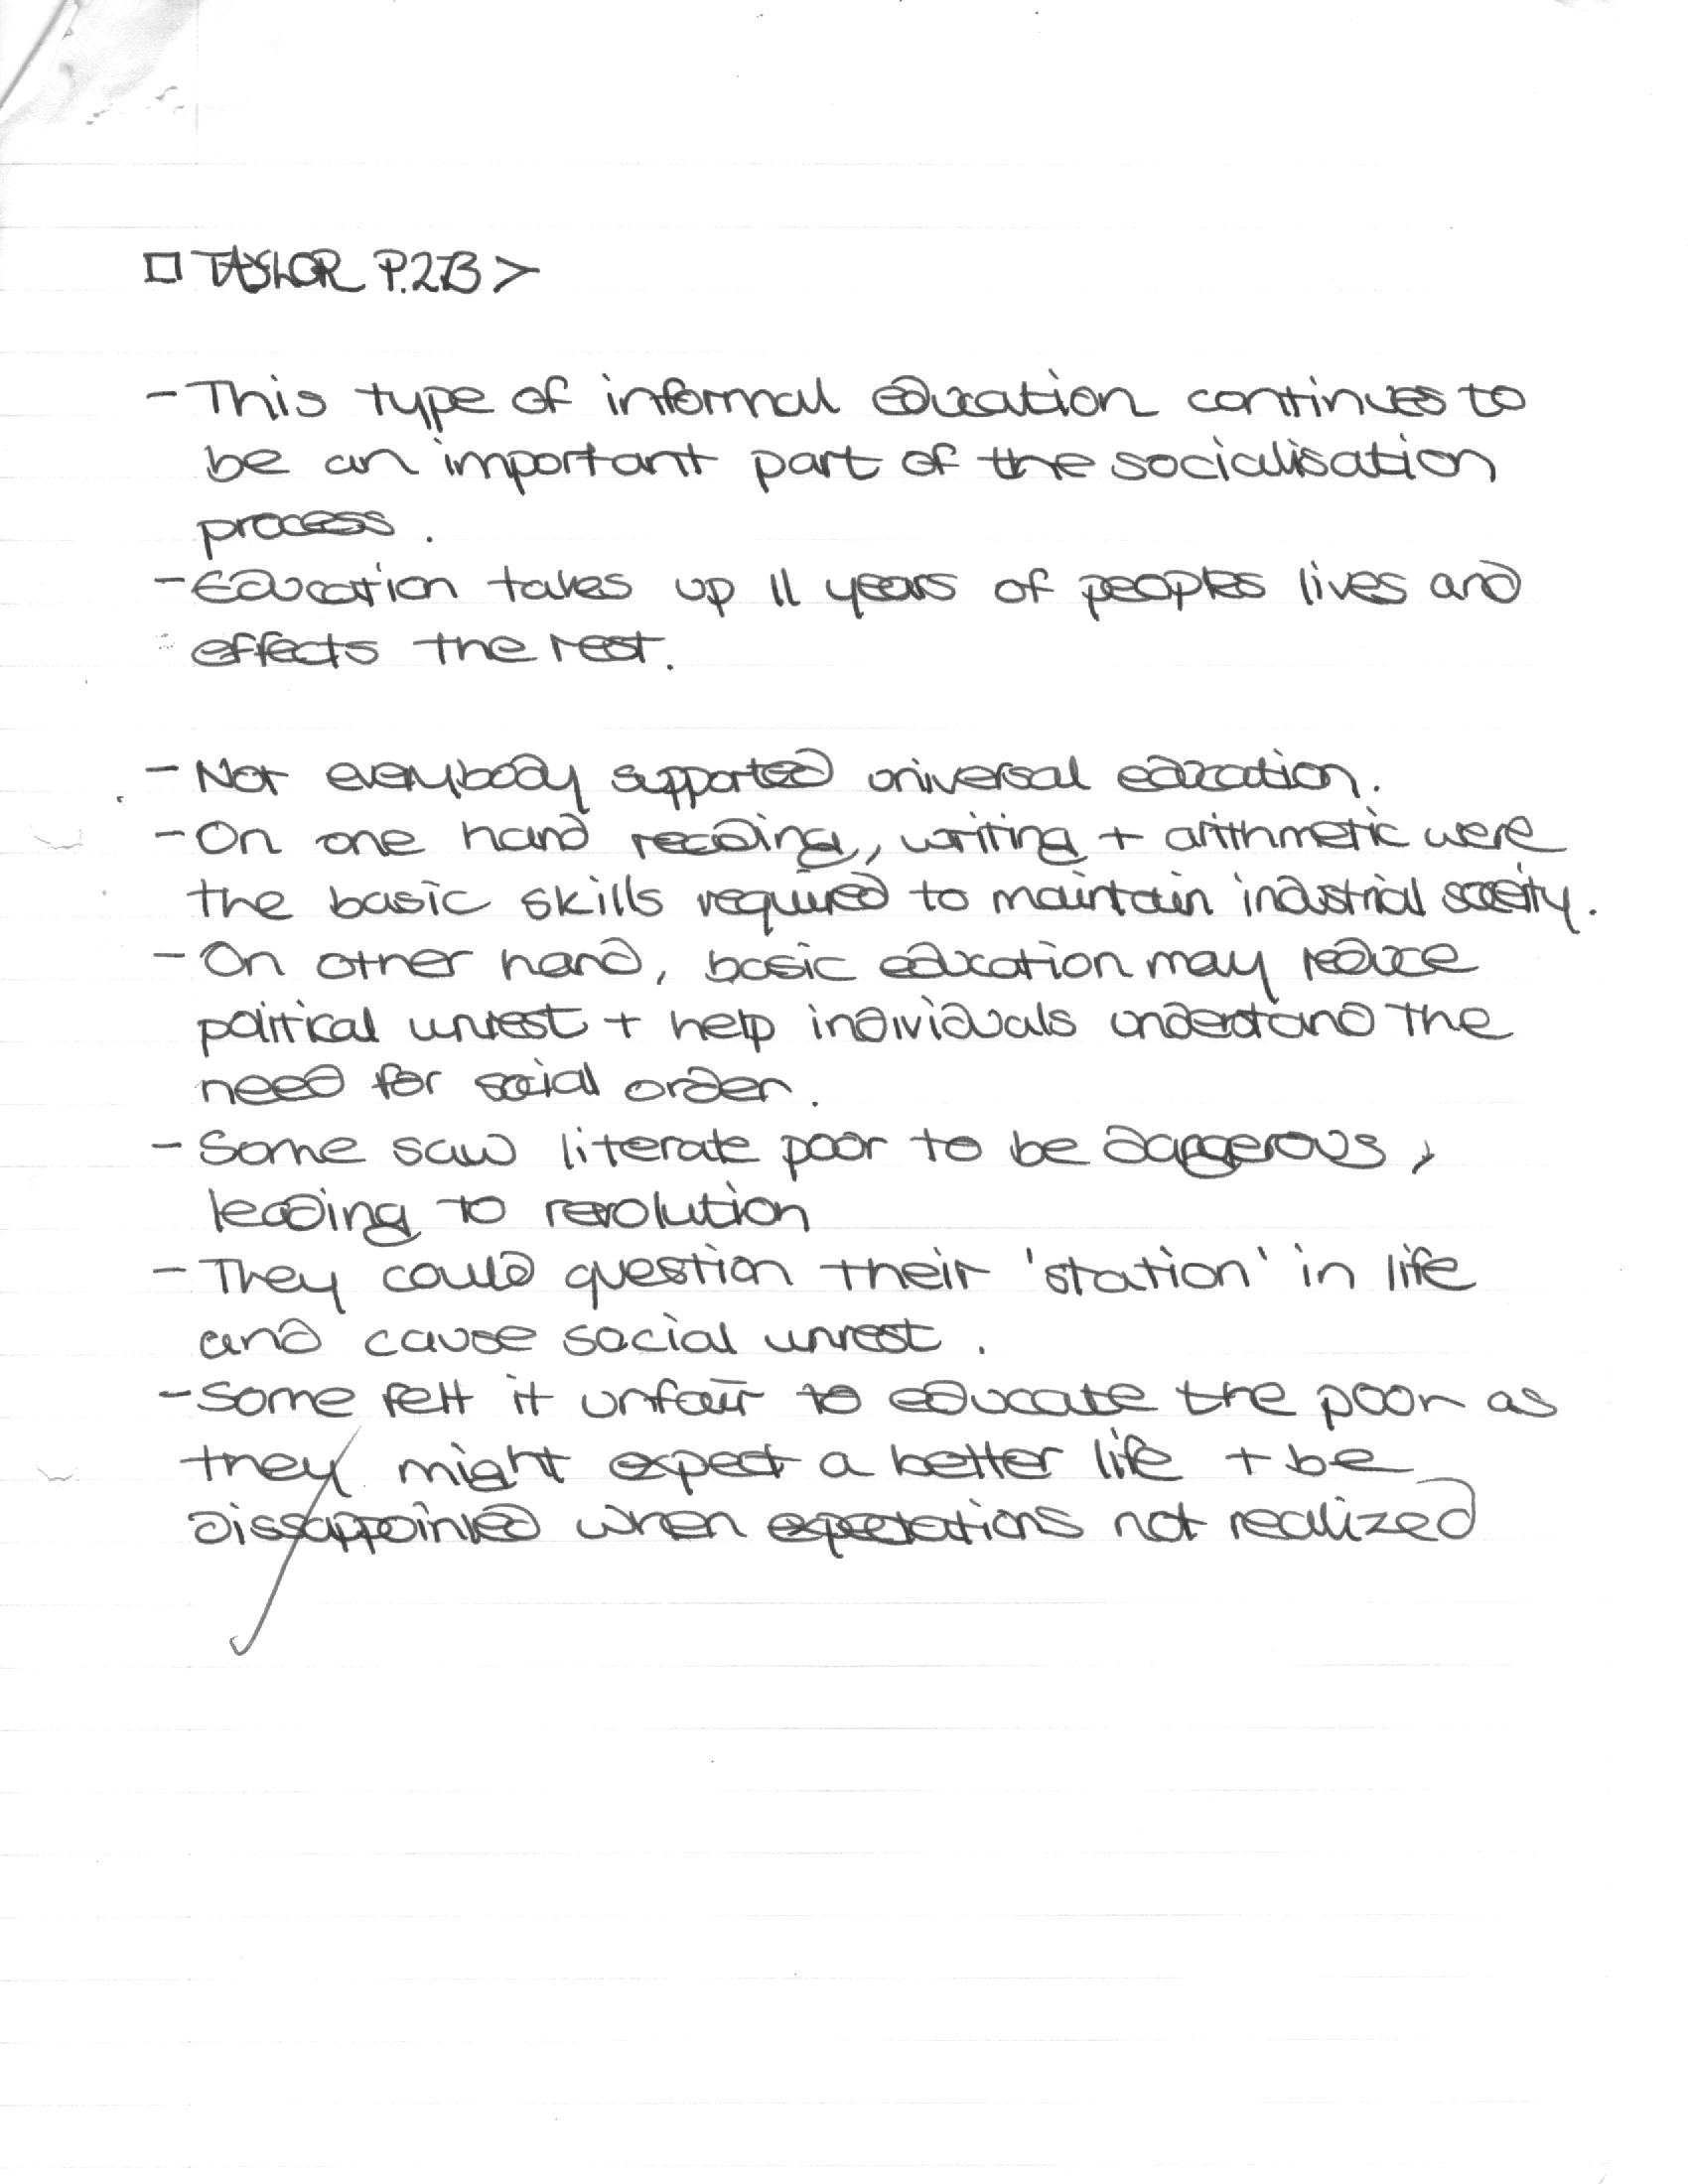 □ TAYLOR P.273 >
- This type of informal education continues to
be an important part of the socialisation
process.
- Education takes up 11 years of peoples lives and
effects the rest.
- Not everybody supported universal education.
- On one hand reading, writing + arithmetic were
the basic skills required to maintain industrial soceity.
- On other hand, basic education may reduce
political unrest + help individuals understand the
need for social order.
- Some saw literate poor to be dangerous,
leading to revolution
- They could question their 'station' in life
and cause social unrest.
- Some felt it unfair to educate the poor as
they might expect a better life + be
dissappointed when expectations not realized